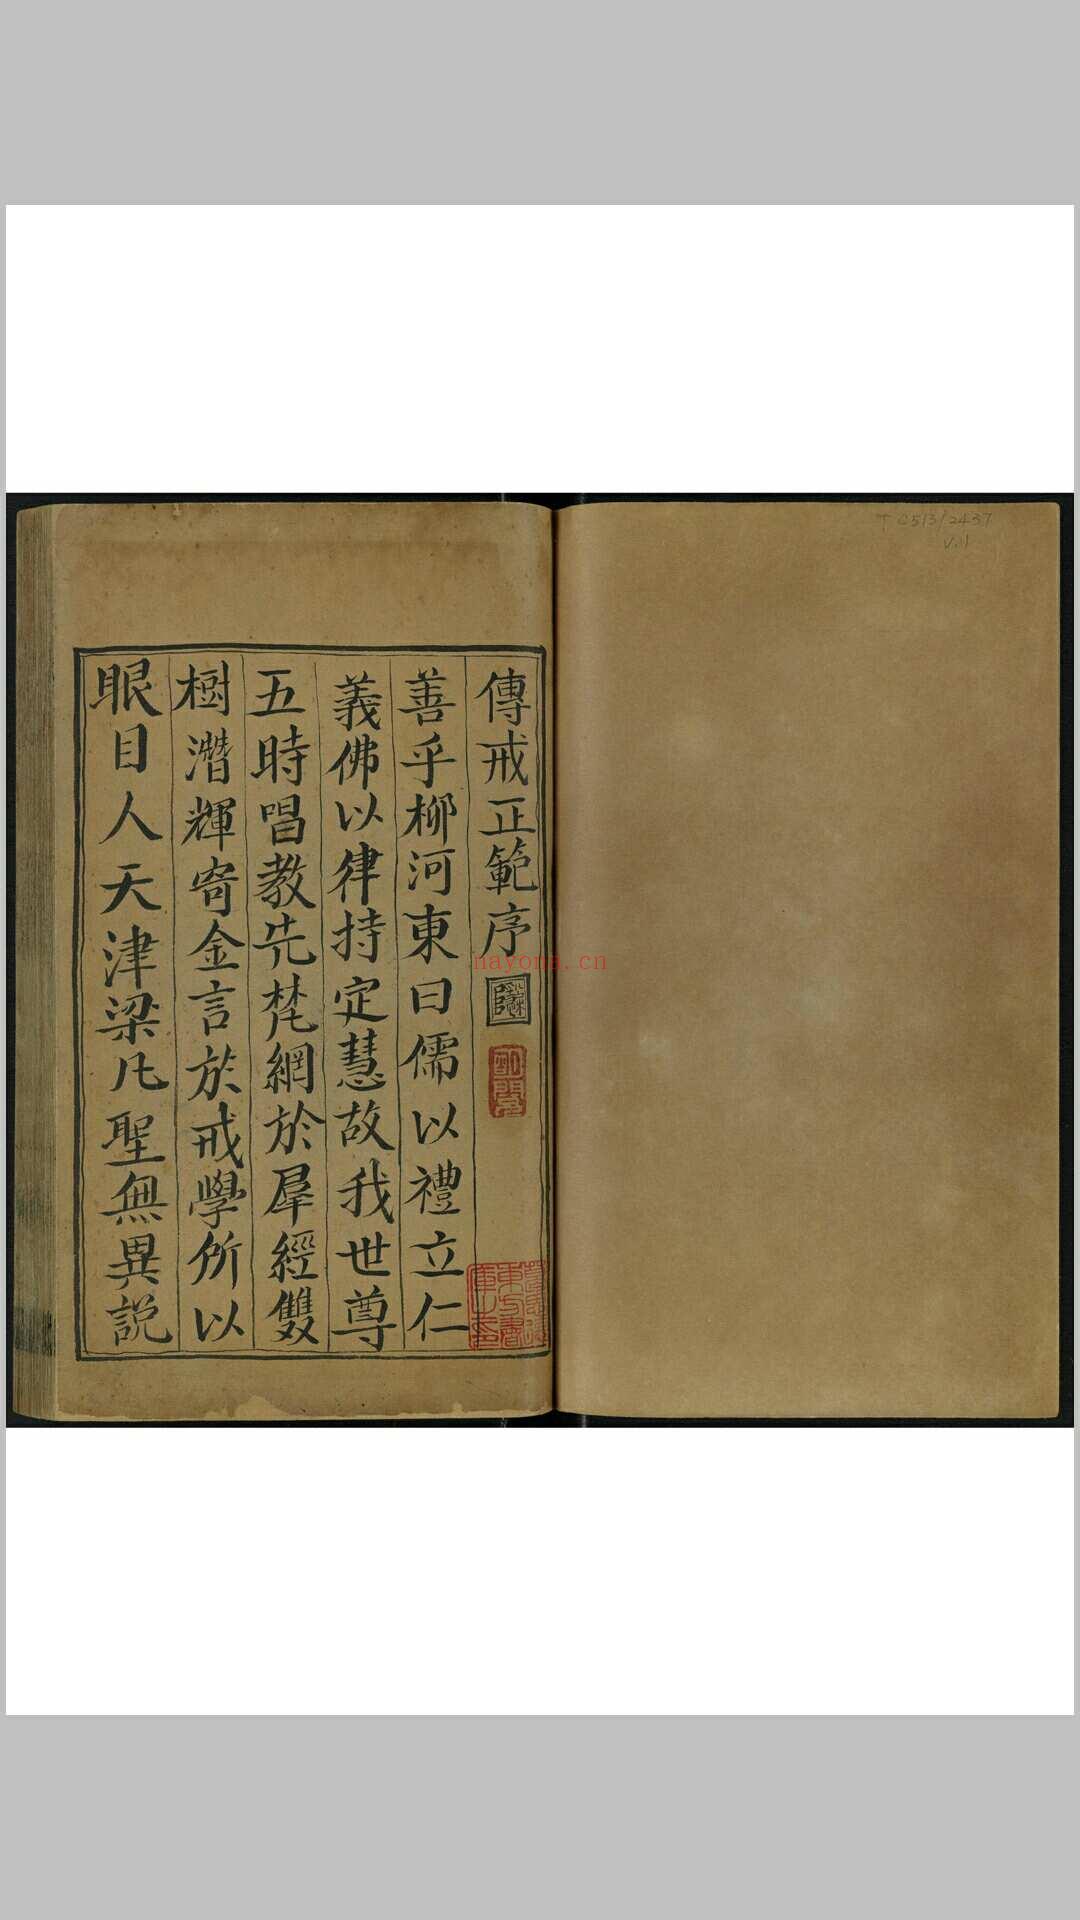 T C513/2437
V.11
傳戒正範序
善乎柳河東曰儒以禮立仁
義佛以律持定慧故我世尊
五時唱教先梵網於羣經雙
樹潛輝寄金言於戒學所以
眼目人天津梁凡聖無異說
nayona.cn